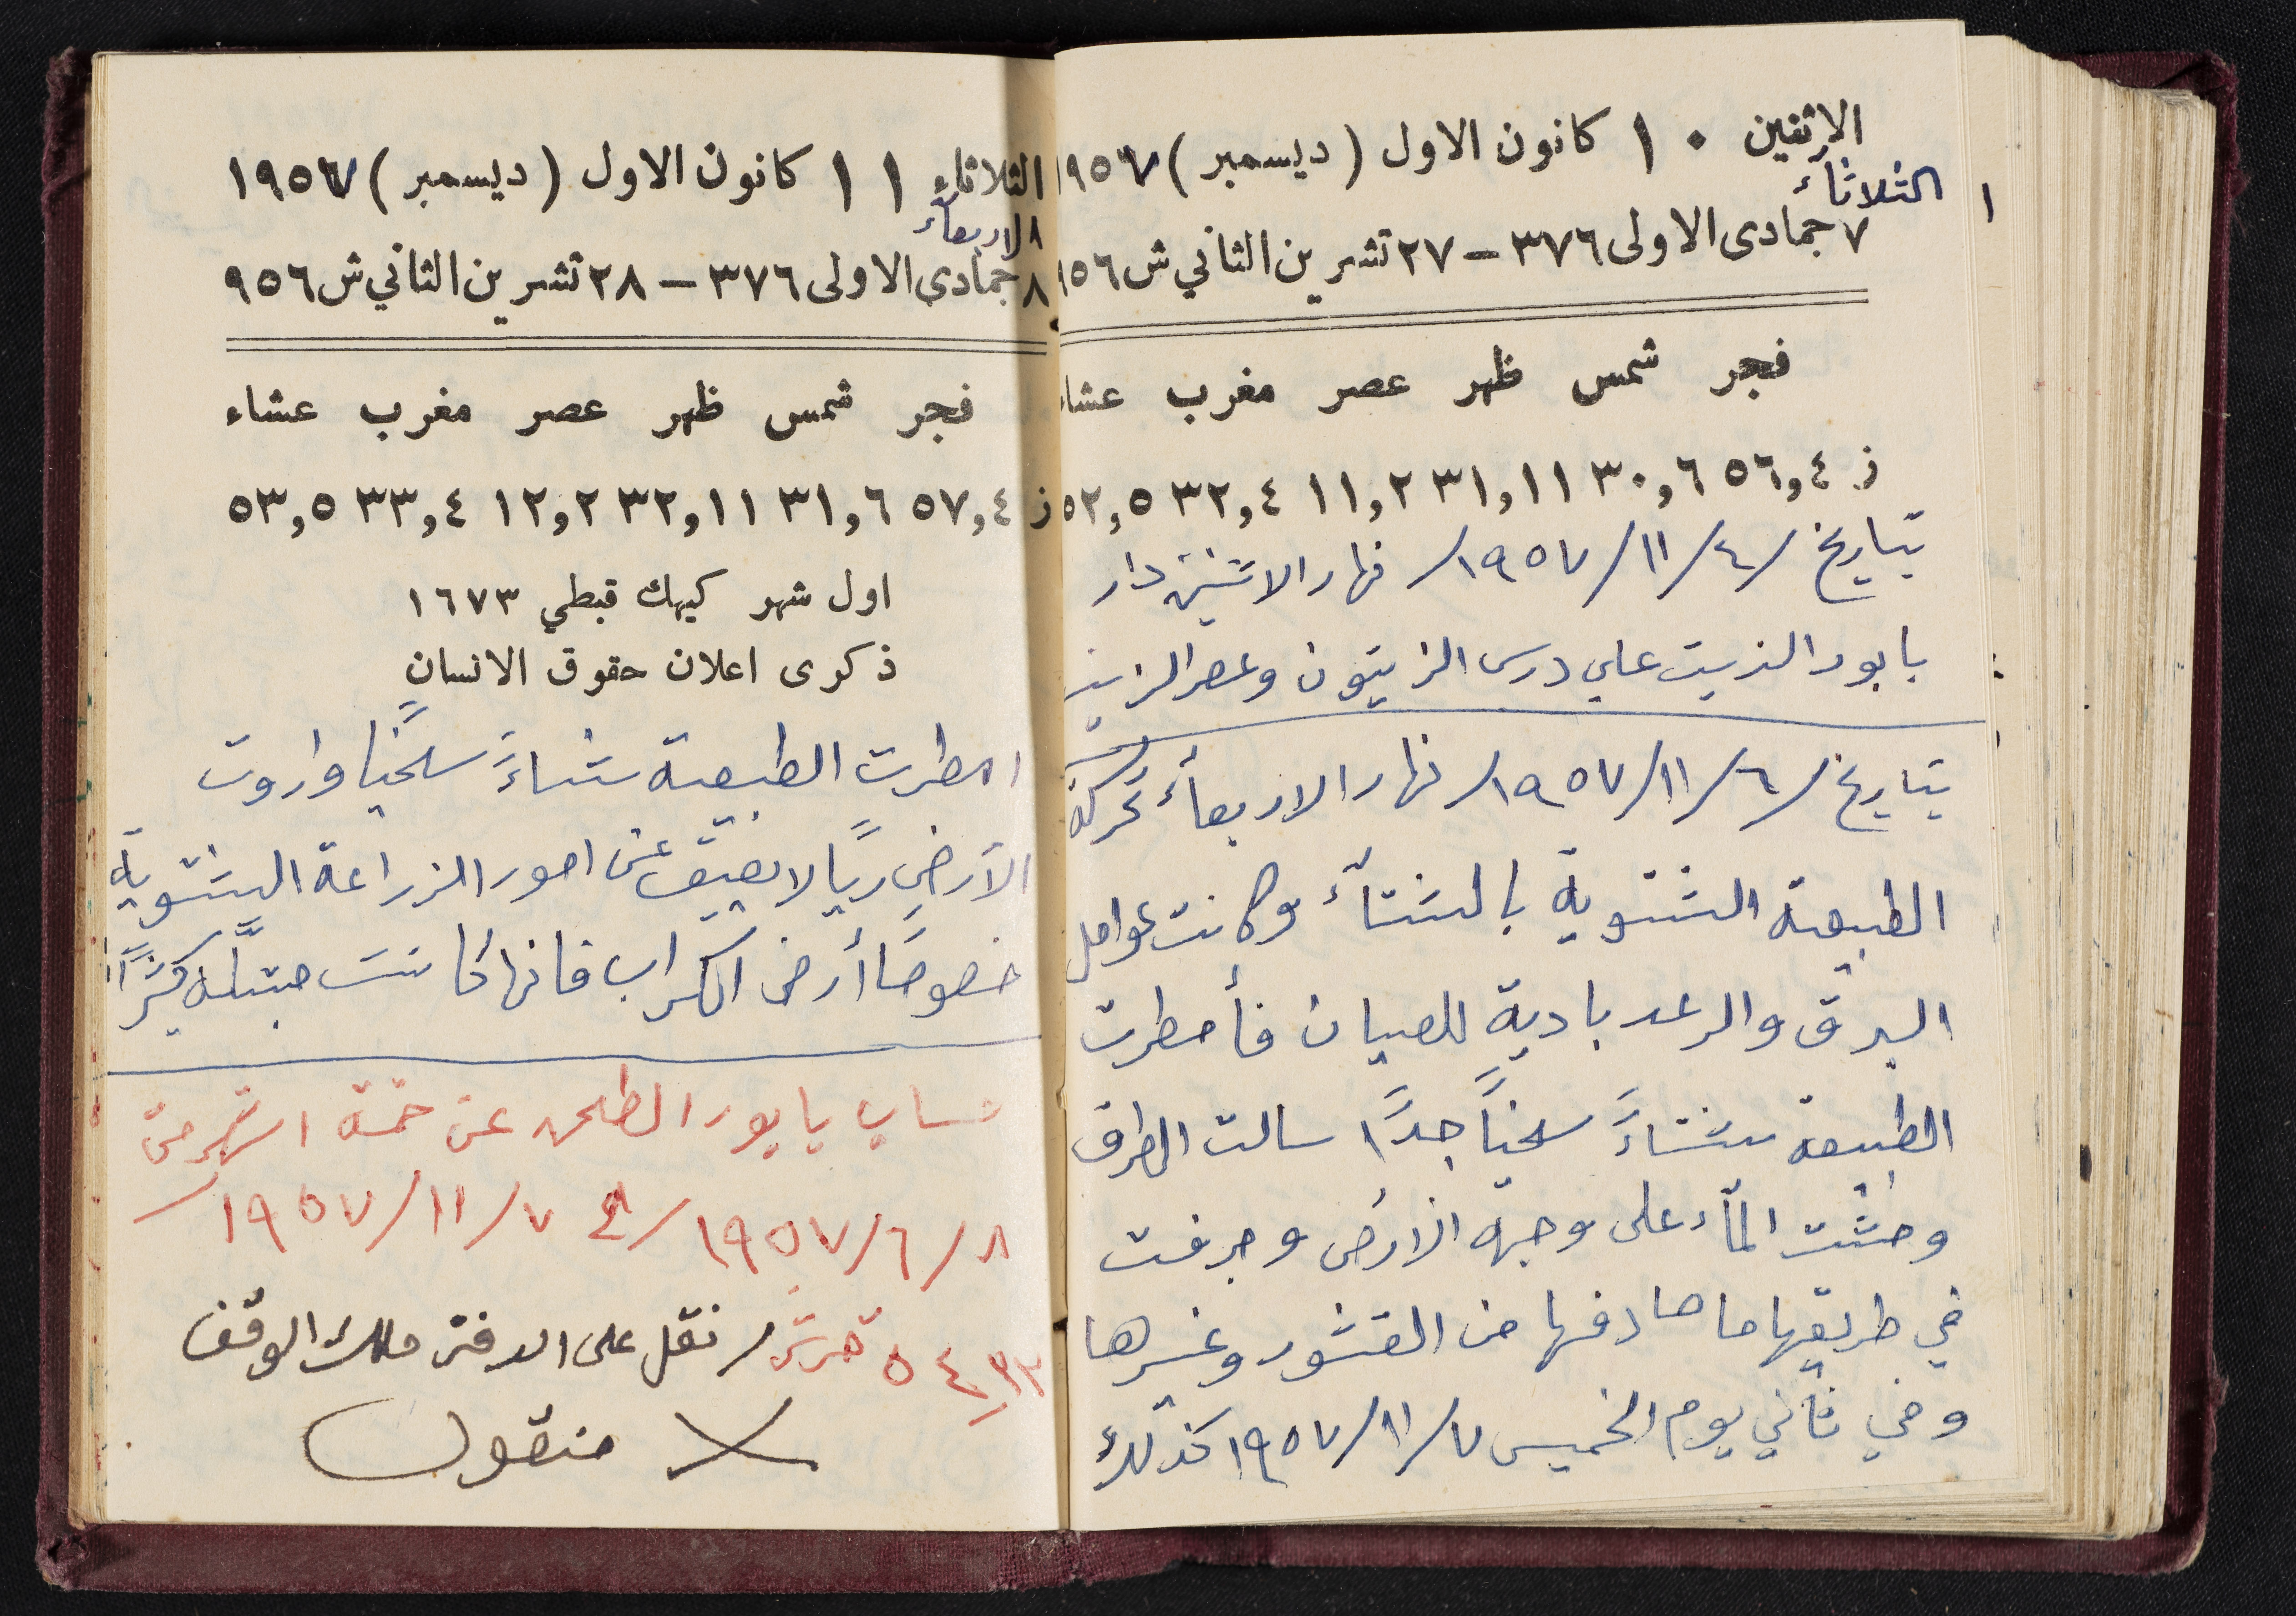 الاثنين ١٠ كانون الاول (ديسمبر) ١٩٥٧
الثلاثاء
٧ جمادى الاولى ٣٧٦ – ٢٧ تشرين الثاني ش ٩٥٦
فجر شمس ظهر عصر مغرب عشاء
ز ٥٦,٤ ٣٠,٦ ٣١,١١ ١١,٢ ٣٢,٤ ٥٢,٥
بتاريخ /٤/١١/١٩٥٧/ نهار الاثنين دار
بابور الزيت على درس الزيتون وعصر الزيت
بتاريخ /٦/١١/١٩٥٧/ نهار الاربعاء تحركة
الطبيعة الشتوية بالشتآء وكانت عوامل
البرق والرعد بادية للعيان فأمطرت
الطبيعة شتاءً سخياً جداً سالت الطرق
ومشت المآء على وجه الارض وجرفت
في طريقها ما صادفها من القشور وغيرها
وفي ثاني يوم الخميس ٧/١١/١٩٥٧ كذلك
الثلاثاء ١١ كانون الاول (ديسمبر) ١٩٥٧
الاربعاء
٨ جمادى الاولى ٣٧٦ – ٢٨ تشرين الثاني ش ٩٥٦
فجر شمس ظهر عصر مغرب عشاء
ز ٥٧,٤ ٣١,٦ ٣٢,١١ ١٢,٢ ٣٣,٤ ٥٣,٥
اول شهر كيهك قبطي ١٦٧٣
ذكرى اعلان حقوق الانسان
امطرت الطبيعة شتاءً سخيا واروت
الأرض ريًا لا يعيق عن امور الزراعة الشتوية
خصوصًا أرض الكراب فانها كانت مبتلة كثيرًا
حساب بابور الطحن عن خمسة اشهر من
٨/٦/١٩٥٧/ ٧/١١/١٩٥٧/
نقل على الدفتر ملك الوقف
منقول